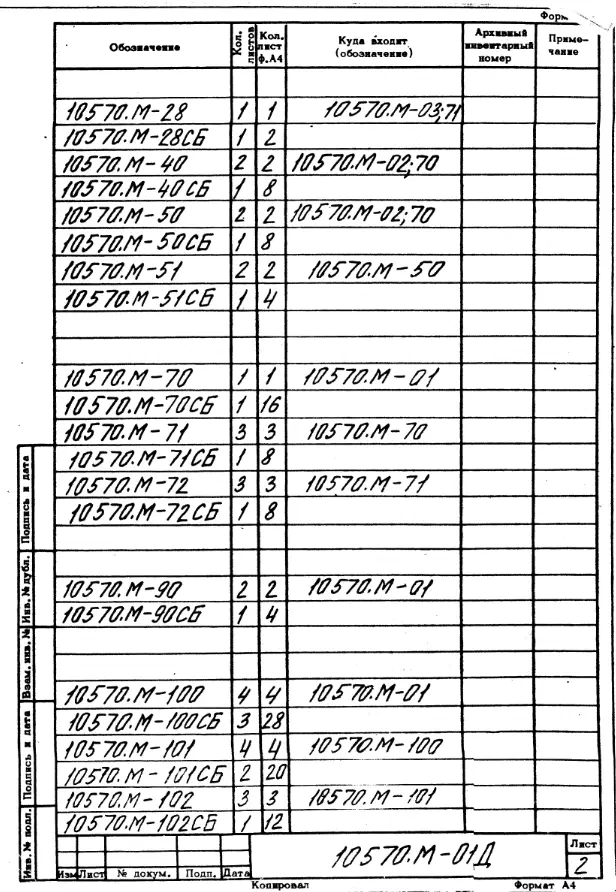 Обозначение Кол. листов Кол. лист ф.А4 Куда входит (обозначение) Архивный инвентарный номер Примечание
10570.М-28 1 1 10570.М-03;71
10570.М-28СБ 1 2
10570.М-40 2 2 10570.М-02;70
10570.М-40СБ 1 8
10570.М-50 2 2 10570.М-02;70
10570.М-50СБ 1 8
10570.М-51 2 2 10570.М-50
10570.М-51СБ 1 4
10570.М-70 1 1 10570.М-01
10570.М-70СБ 1 16
10570.М-71 3 3 10570.М-70
10570.М-71СБ 1 8
10570.М-72 3 3 10570.М-71
10570.М-72СБ 1 8
10570.М-90 2 2 10570.М-01
10570.М-90СБ 1 4
10570.М-100 4 4 10570.М-01
10570.М-100СБ 3 28
10570.М-101 4 4 10570.М-100
10570.М-101СБ 2 20
10570.М-102 3 3 10570.М-101
10570.М-102СБ 1 12
Подпись и дата
Инв. № дубл.
Взам. инв. №
Подпись и дата
Инв. № подл.
Изм Лист № докум. Подп. Дата
10570.М-01Д
Лист
2
Копировал Формат А4